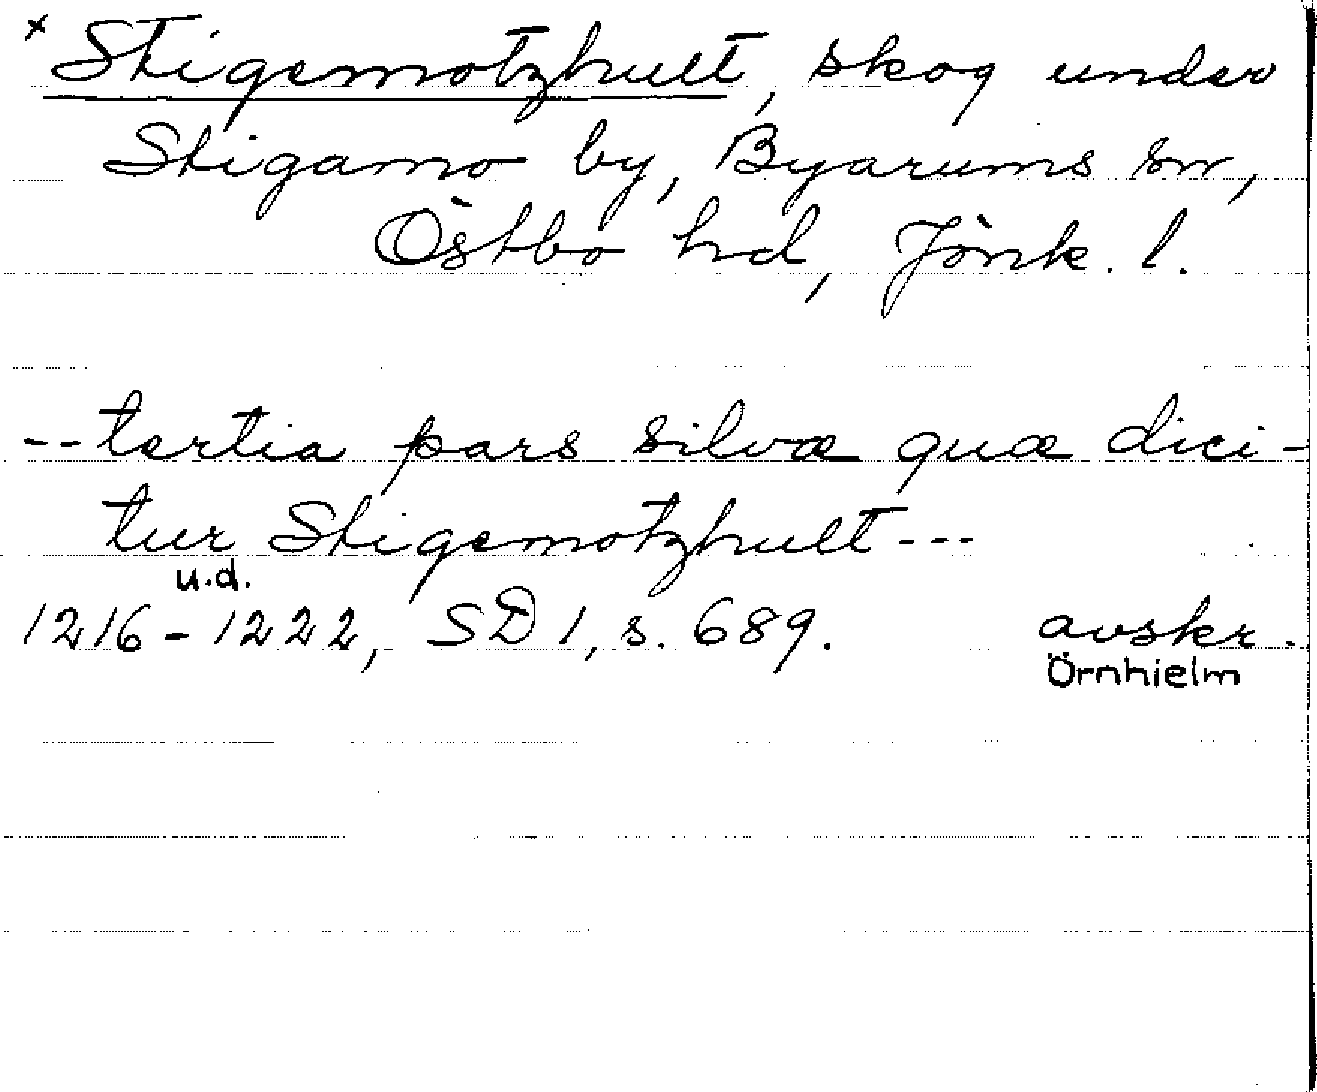 x Stigemotzhult, skog under
Stigamo by, Byarums sn,
Östbo hd, Jönk. l.
-- tertia pars silvæ quæ dici-
tur Stigemotzhult ---
u.d.
1216-1222, SD 1, s. 689. avskr.
Örnhielm